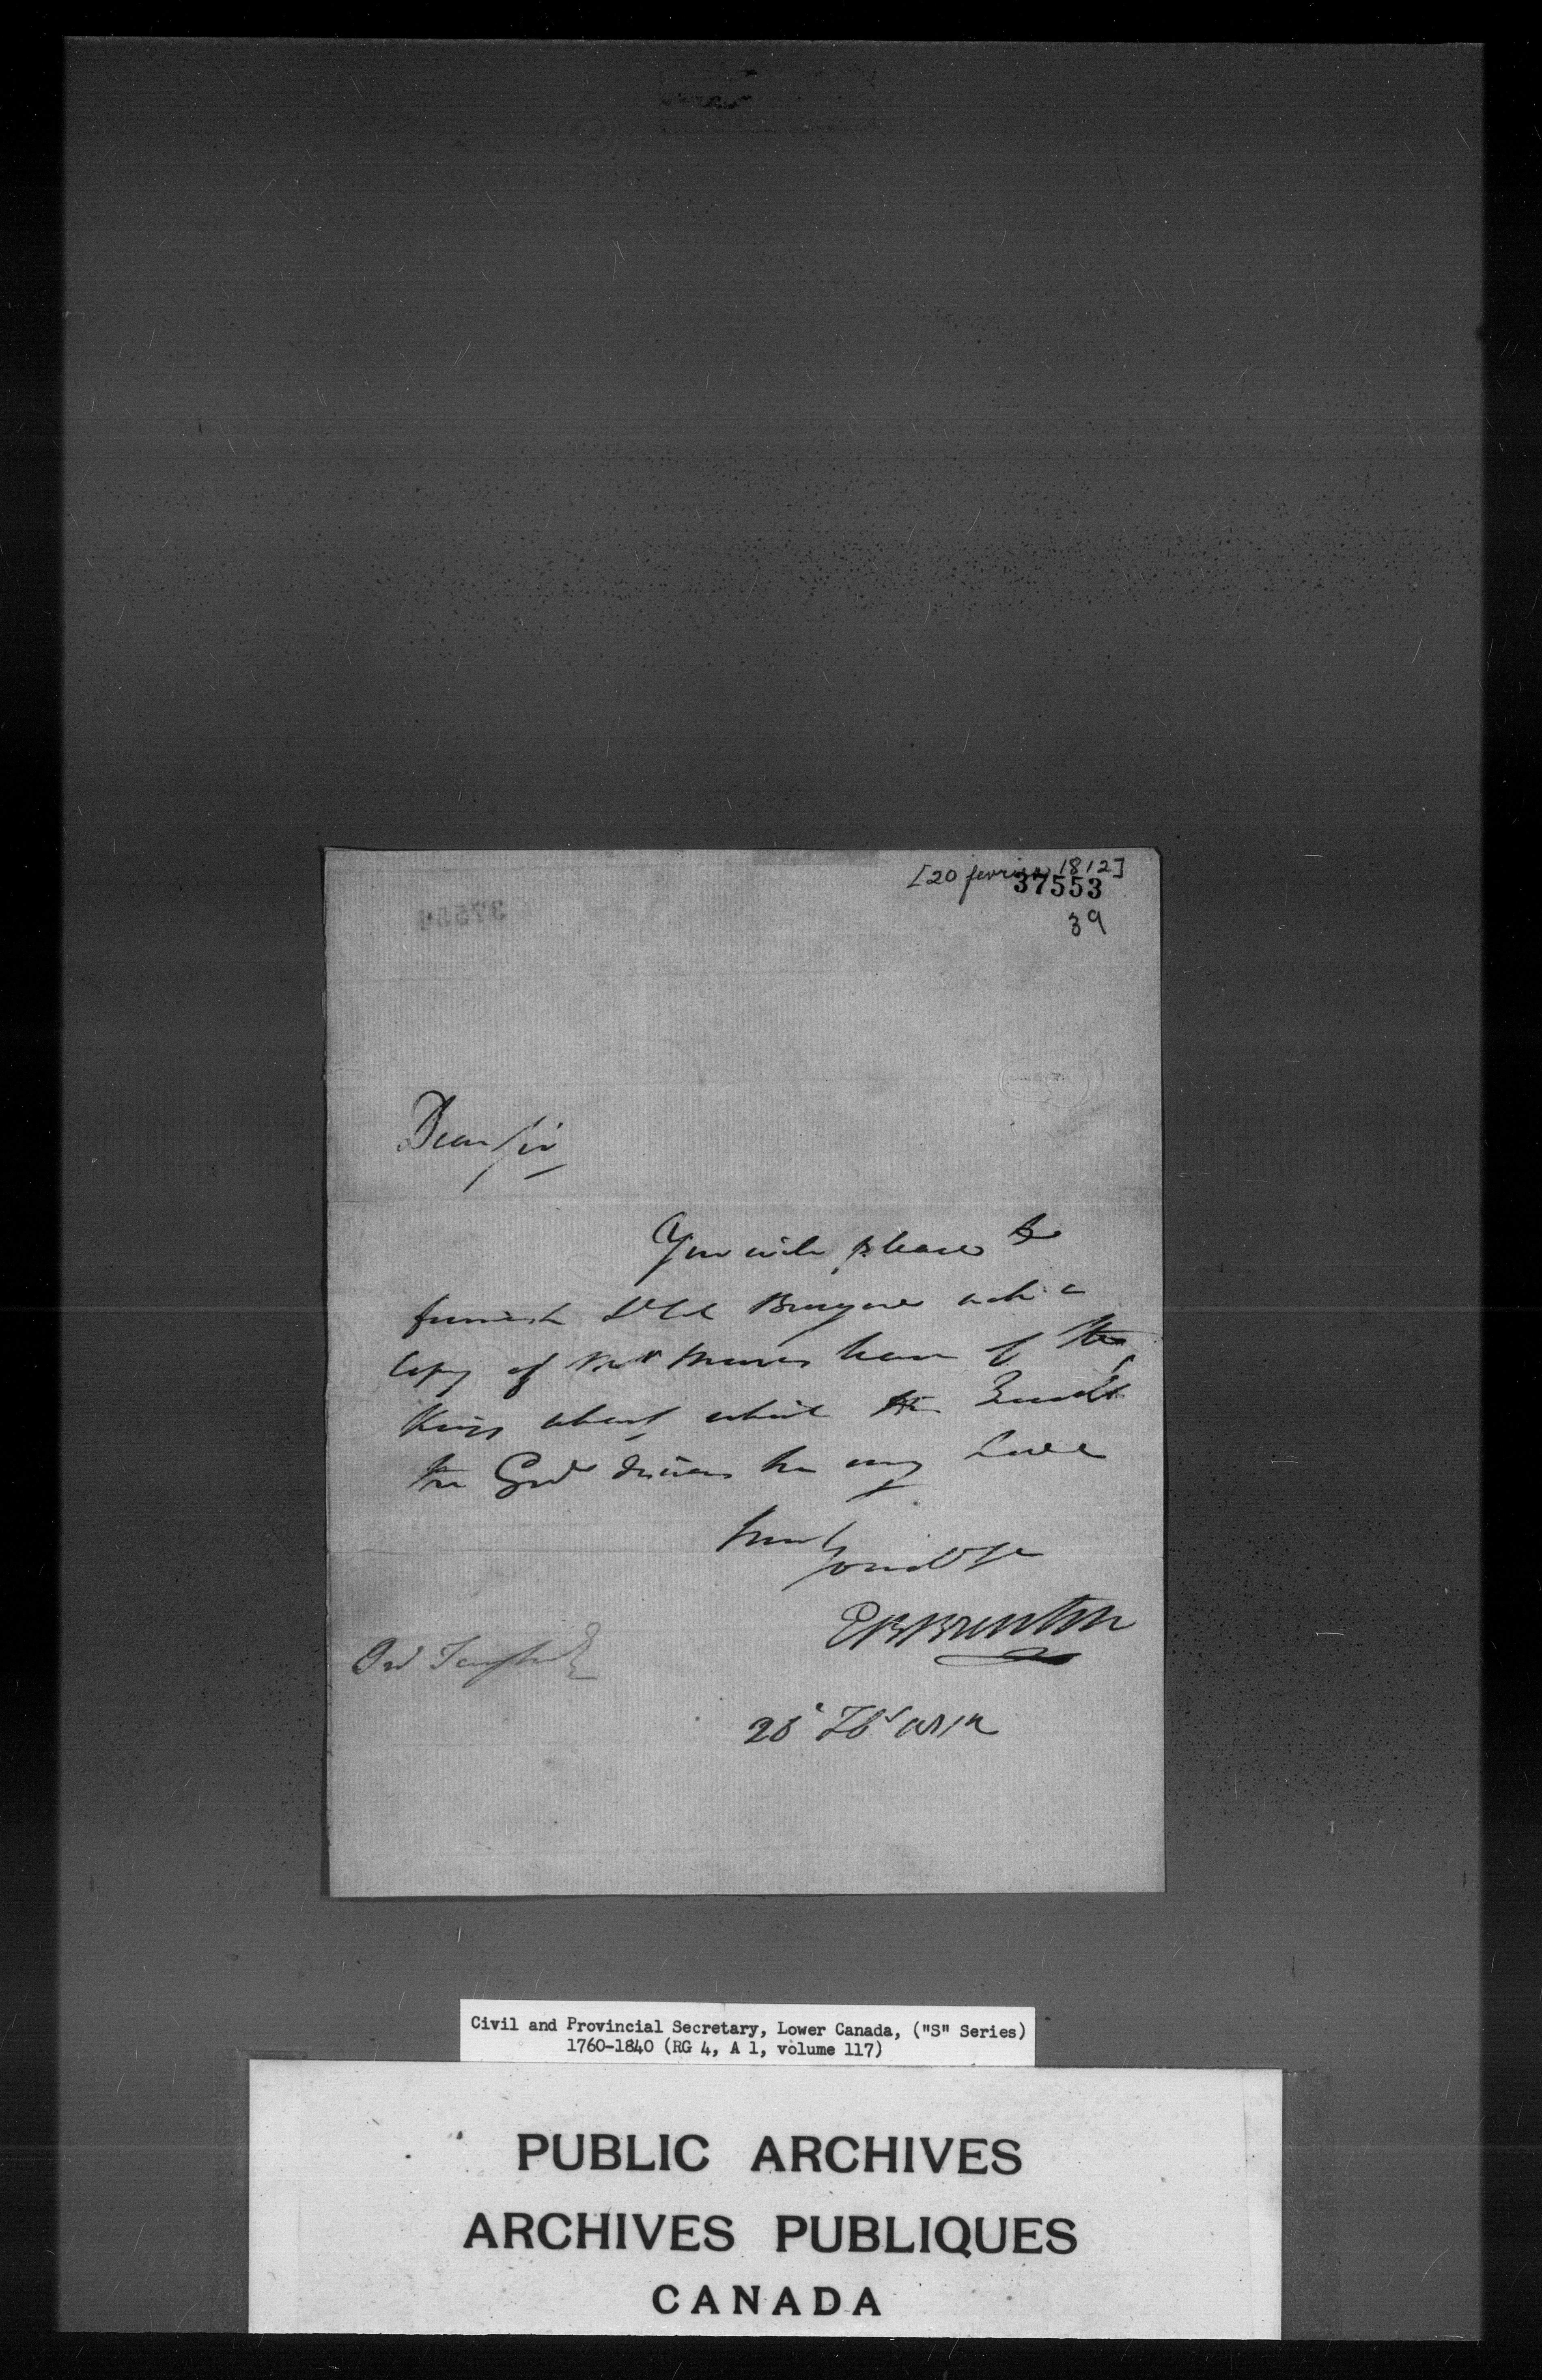 [20 fevrier 1812]
37553
39
Dear Sir
You will please to
furnish Lt Col Bruyeres with a
Copy of Mr Munros lease of the
Kings wharf which
the Govr desires he may have
Yours
EBBrenton
Civil and Provincial Secretary, Lower Canada, ("S" Series)
1760-1840 (RG 4, A 1, volume 117)
PUBLIC ARCHIVES
ARCHIVES PUBLIQUES
CANADA